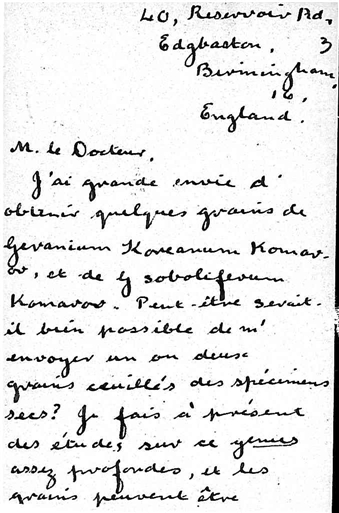 40, Reservoir Rd,
Edgbaston, 3
Birmingham,
16,
England.
M. le Docteur,
J'ai grande envie d'
obtenir quelques grains de
Geranium Koreanum Komar-
ov, et de G soboliferum
Komarov. Peut-être serait-
il bien possible de m'
envoyer un ou deux
grains ceuillés des spécimens
secs? Je fais à présent
des études sur ce genus
assez profondes, et les
grains peuvent être